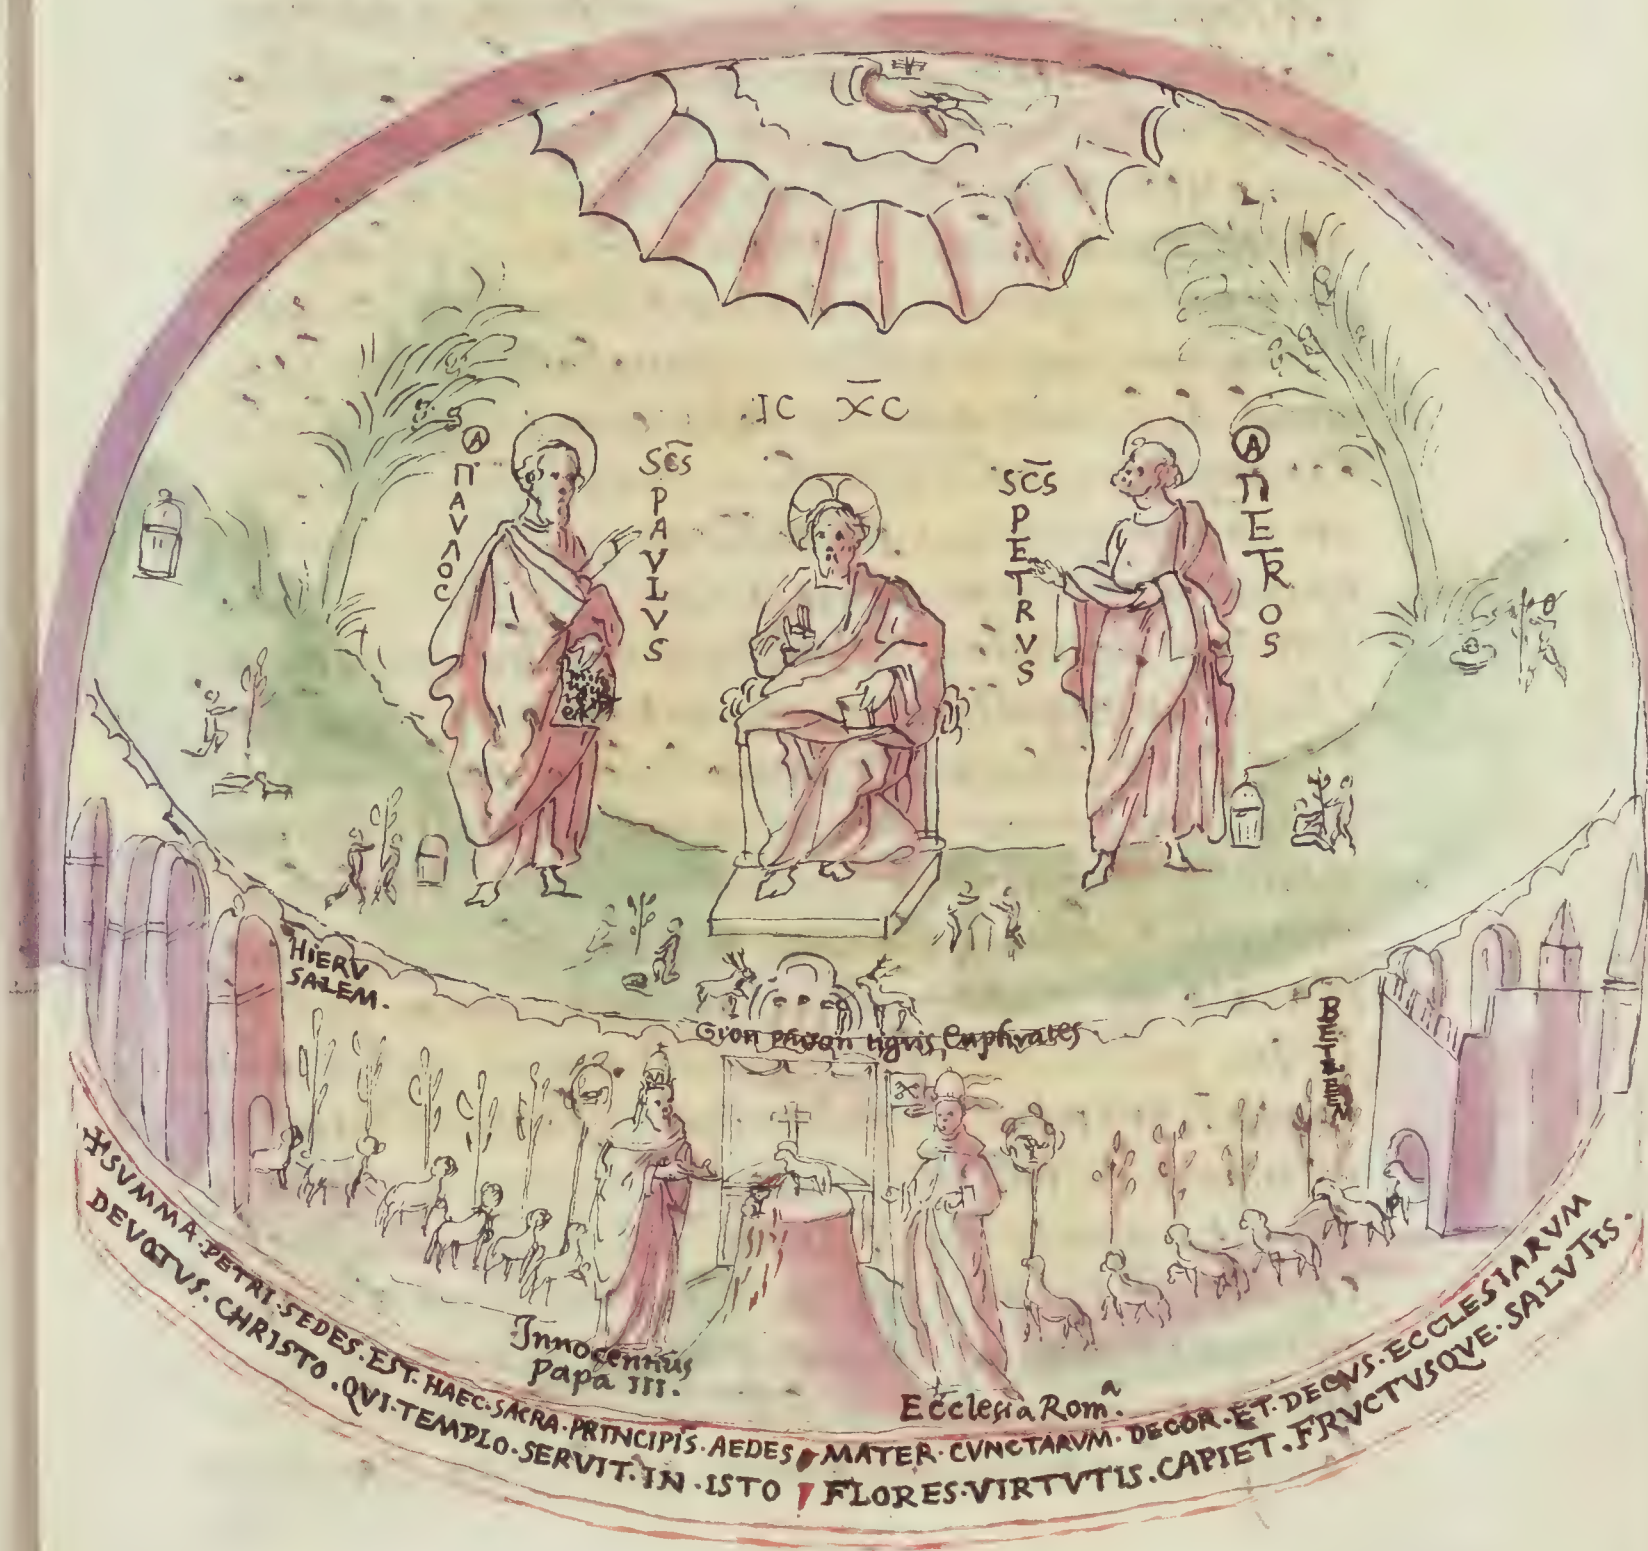 IC X̅C
Ⓐ ΠΑVΛOC
SC̅S PAVLVS
SC̅S PETRVS
Ⓐ ΠETROS
HIERV
SALEM.
Gion pison tigris Euphrates
BETLEEM
Innocentius
Papa III.
Ecclesia Romᵃ.
✠ SVMMA · PETRI · SEDES · EST · HAEC · SACRA · PRINCIPIS · AEDES MATER · CVNCTARVM · DECOR · ET · DECVS · ECCLESIARVM
DEVOTVS · CHRISTO · QVI · TEMPLO · SERVIT · IN · ISTO FLORES · VIRTVTIS · CAPIET · FRVCTVSQVE · SALVTIS ·